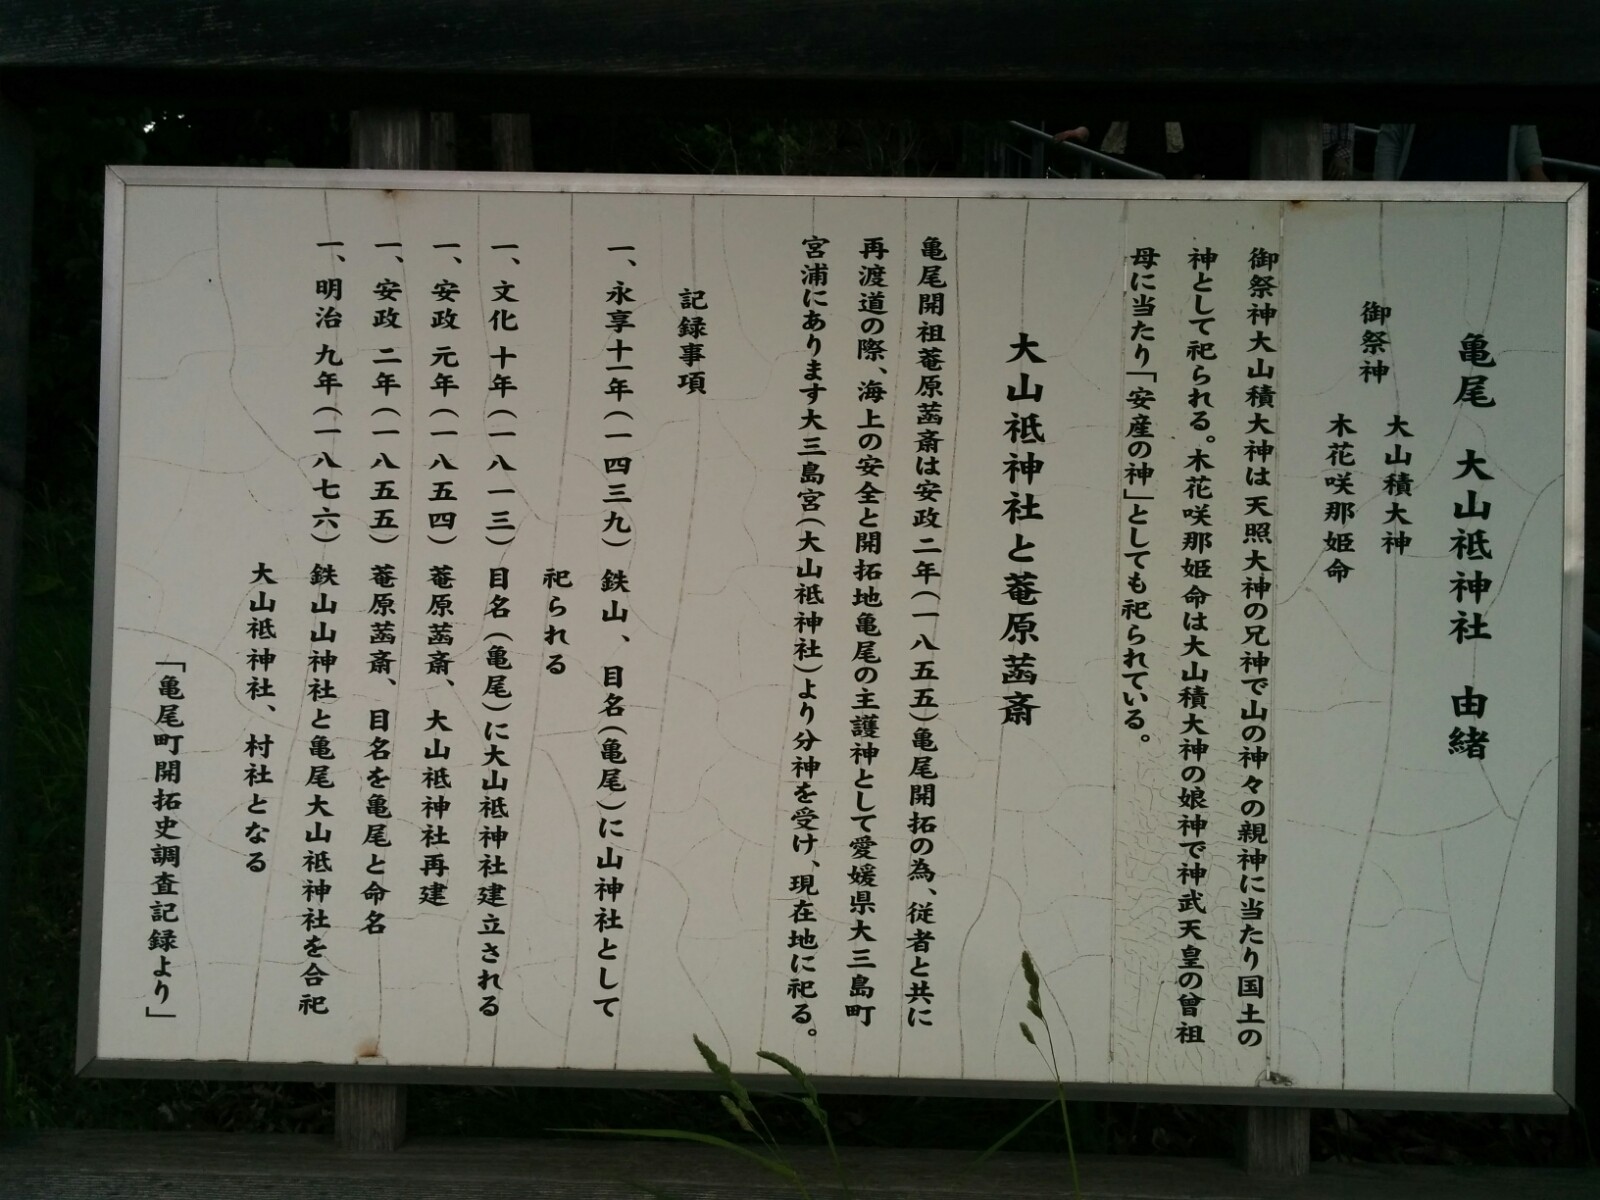 亀尾 大山祇神社 由緒
御祭神 大山積大神
木花咲那姫命
御祭神大山積大神は天照大神の兄神で山の神々の親神に当たり国土の
神として祀られる。木花咲那姫命は大山積大神の娘神で神武天皇の曾祖
母に当たり「安産の神」としても祀られている。
大山祗神社と菴原菡斎
亀尾開祖菴原菡斎は安政二年(一八五五)亀尾開拓の為、従者と共に
再渡道の際、海上の安全と開拓地亀尾の主護神として愛媛県大三島町
宮浦にあります大三島宮(大山祗神社)より分神を受け、現在地に祀る。
記録事項
一、永享十一年(一四三九) 鉄山、目名(亀尾)に山神社として
祀られる
一、文化十年(一八一三) 目名(亀尾)に大山祗神社建立される
一、安政元年(一八五四) 菴原菡斎、大山祗神社再建
一、安政二年(一八五五) 菴原菡斎、目名を亀尾と命名
一、明治九年(一八七六) 鉄山山神社と亀尾大山祗神社を合祀
大山祗神社、村社となる
「亀尾町開拓史調査記録より」